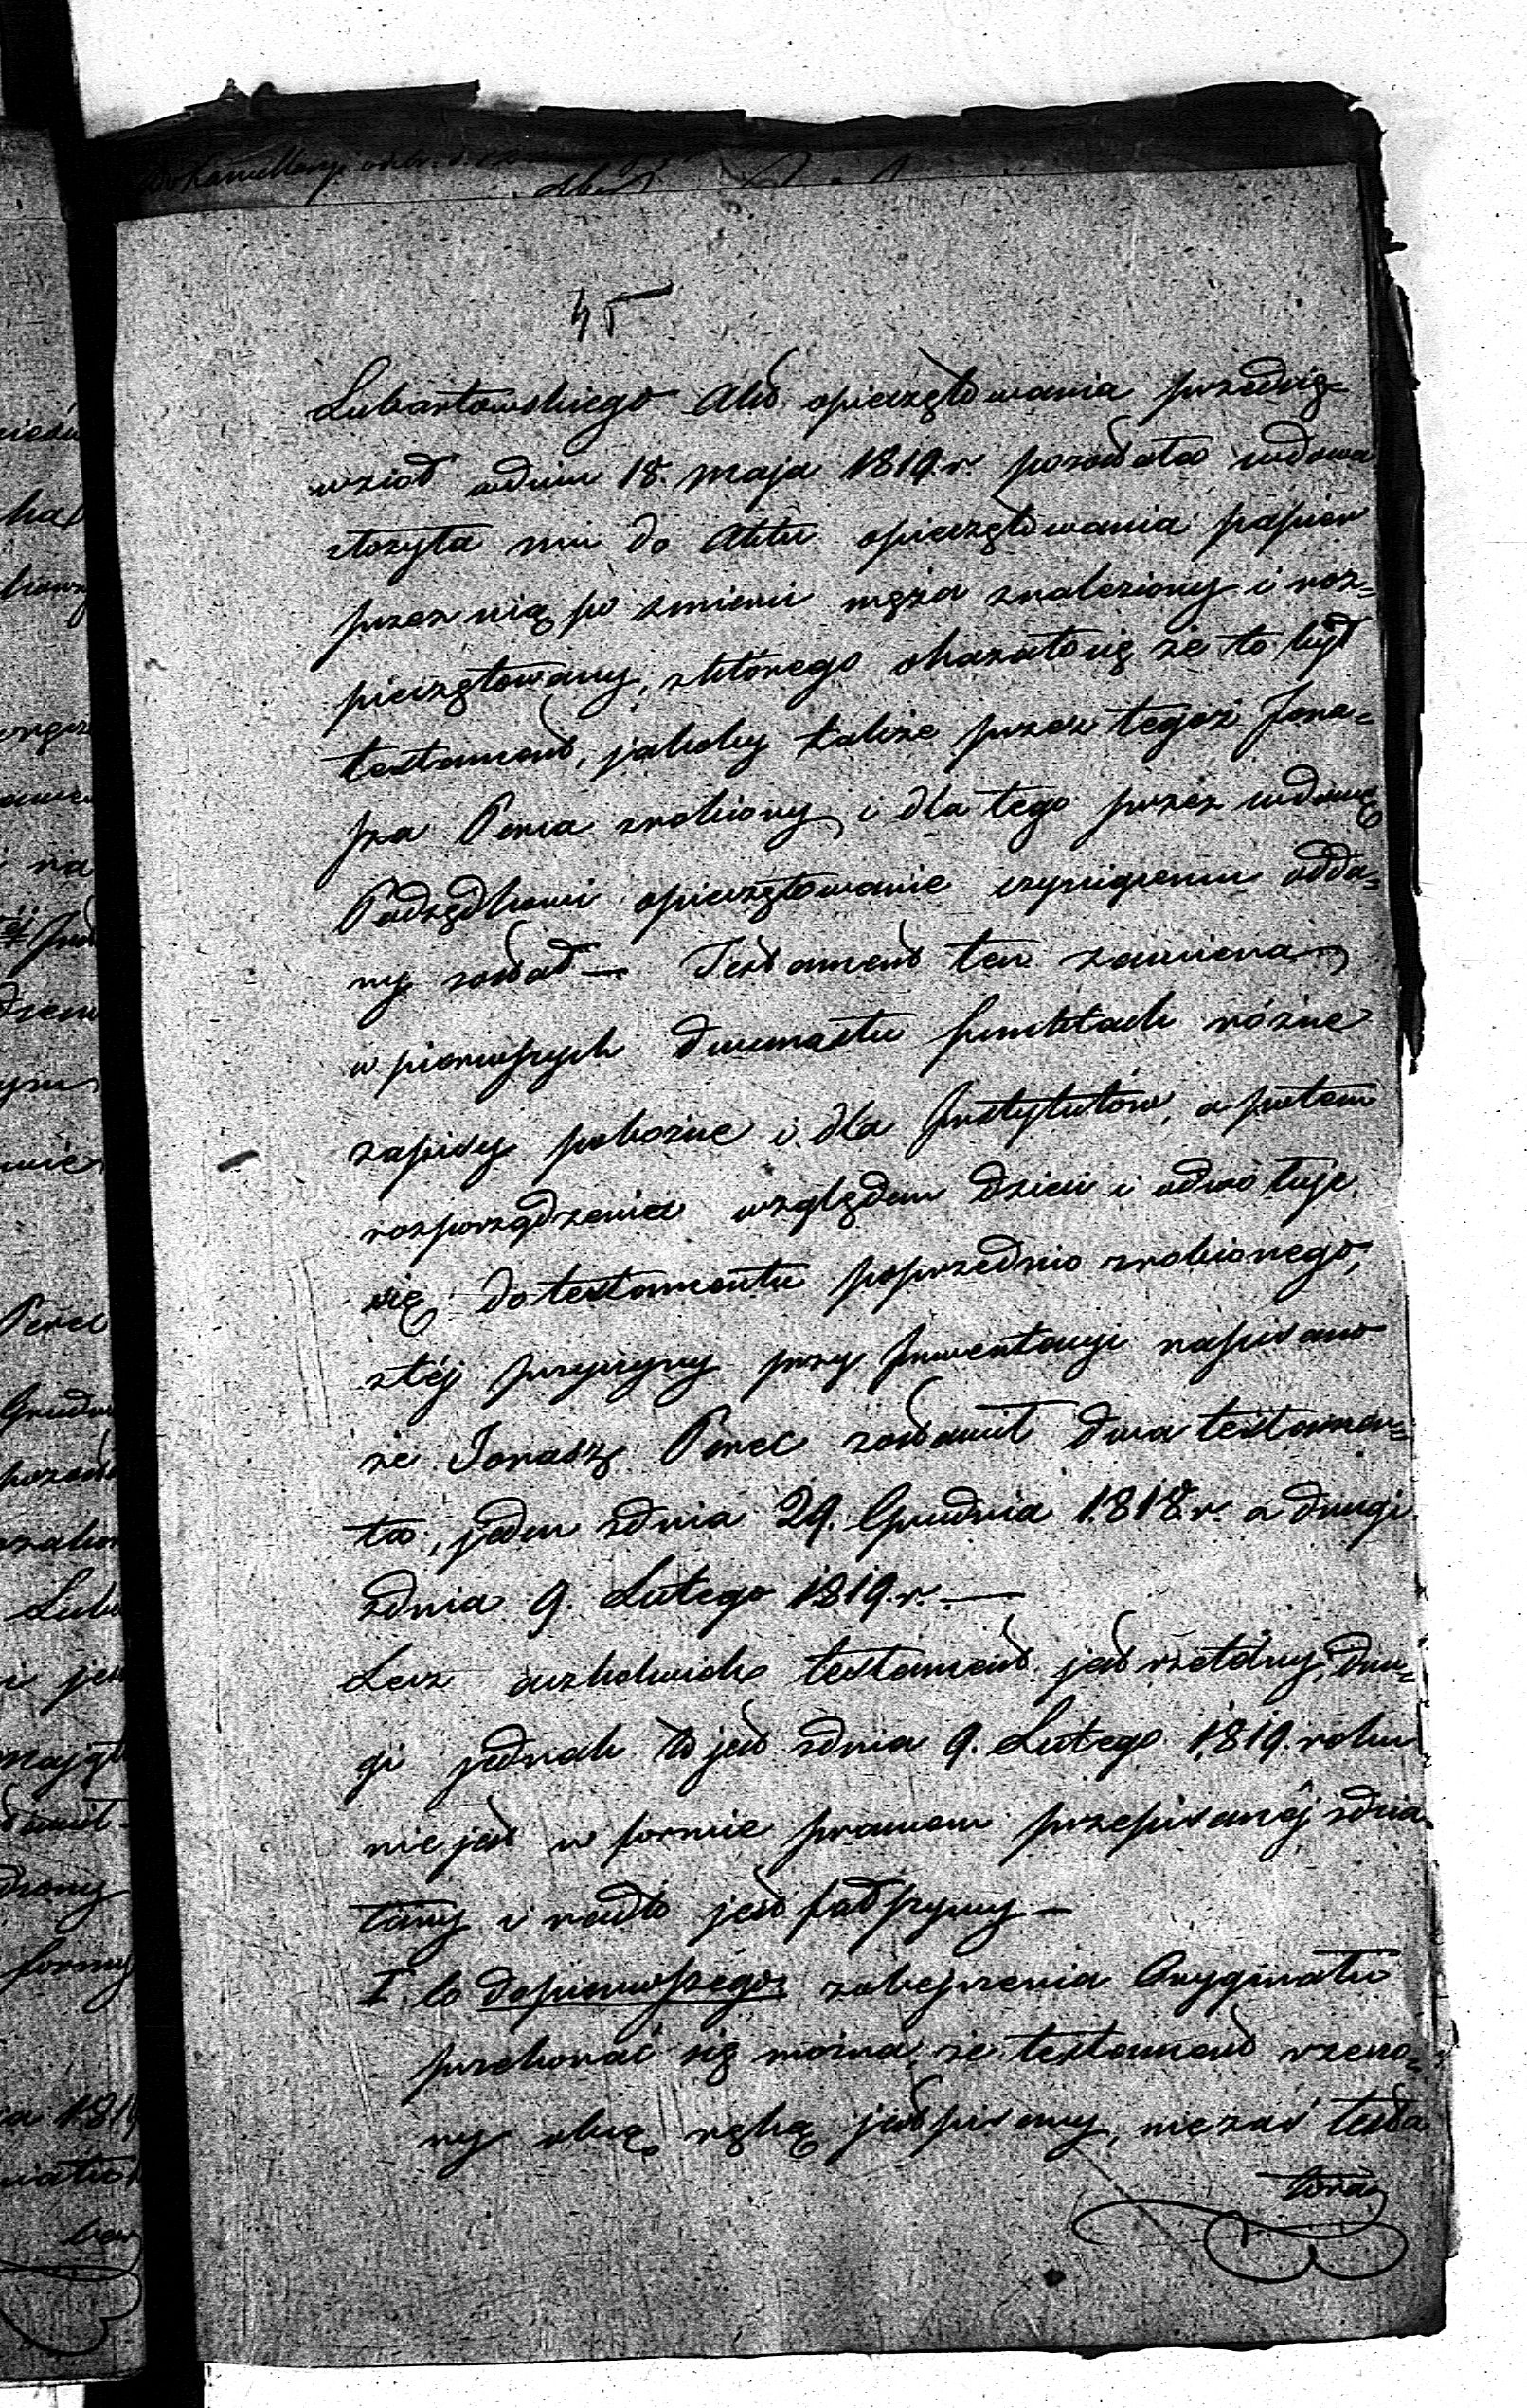 45
Lubartowskiego Akt opieczętowania przedsię=
wziął wdniu 18. Maja 1819.r pozostała wdowa
złożyła mu do Aktu opieczętowania papier
przez nią po śmierci męża znaleziony i roz=
pieczętowany, zktórego okazało się że to był
testament, jakoby także przez tegoż Jona=
sza Perca zrobiony i dla tego przez wdowę
Podsędkowi opieczętowanie czyniącemu odda=
ny został — Testament ten zawiera
w pierwszych dwunastu punktach różne
zapisy pobożne i dla Instytutów, a potem
rozporządzenia względem dzieci i odwołuje
się do testamentu poprzednio zrobionego,
ztéj przyczyny przy Inwentaryi napisano
że Jonasz Perec zostawił dwa testamen=
ta, jeden zdnia 29. Grudnia 1818.r. a drugi
zdnia 9. Lutego 1819.r. —
Lecz aczkolwiek testament jest rzetelny, dru=
gi jednak to jest zdnia 9. Lutego 1819. roku
nie jest w formie prawem przepisanéj zdzia
łany i nadto jest fałszywy —
I. Co dopierwszego, zobejrzenia Oryginału
przekonać się można, że testament rzeczo=
ny obcą ręką jest pisany, nie zaś testa
tora